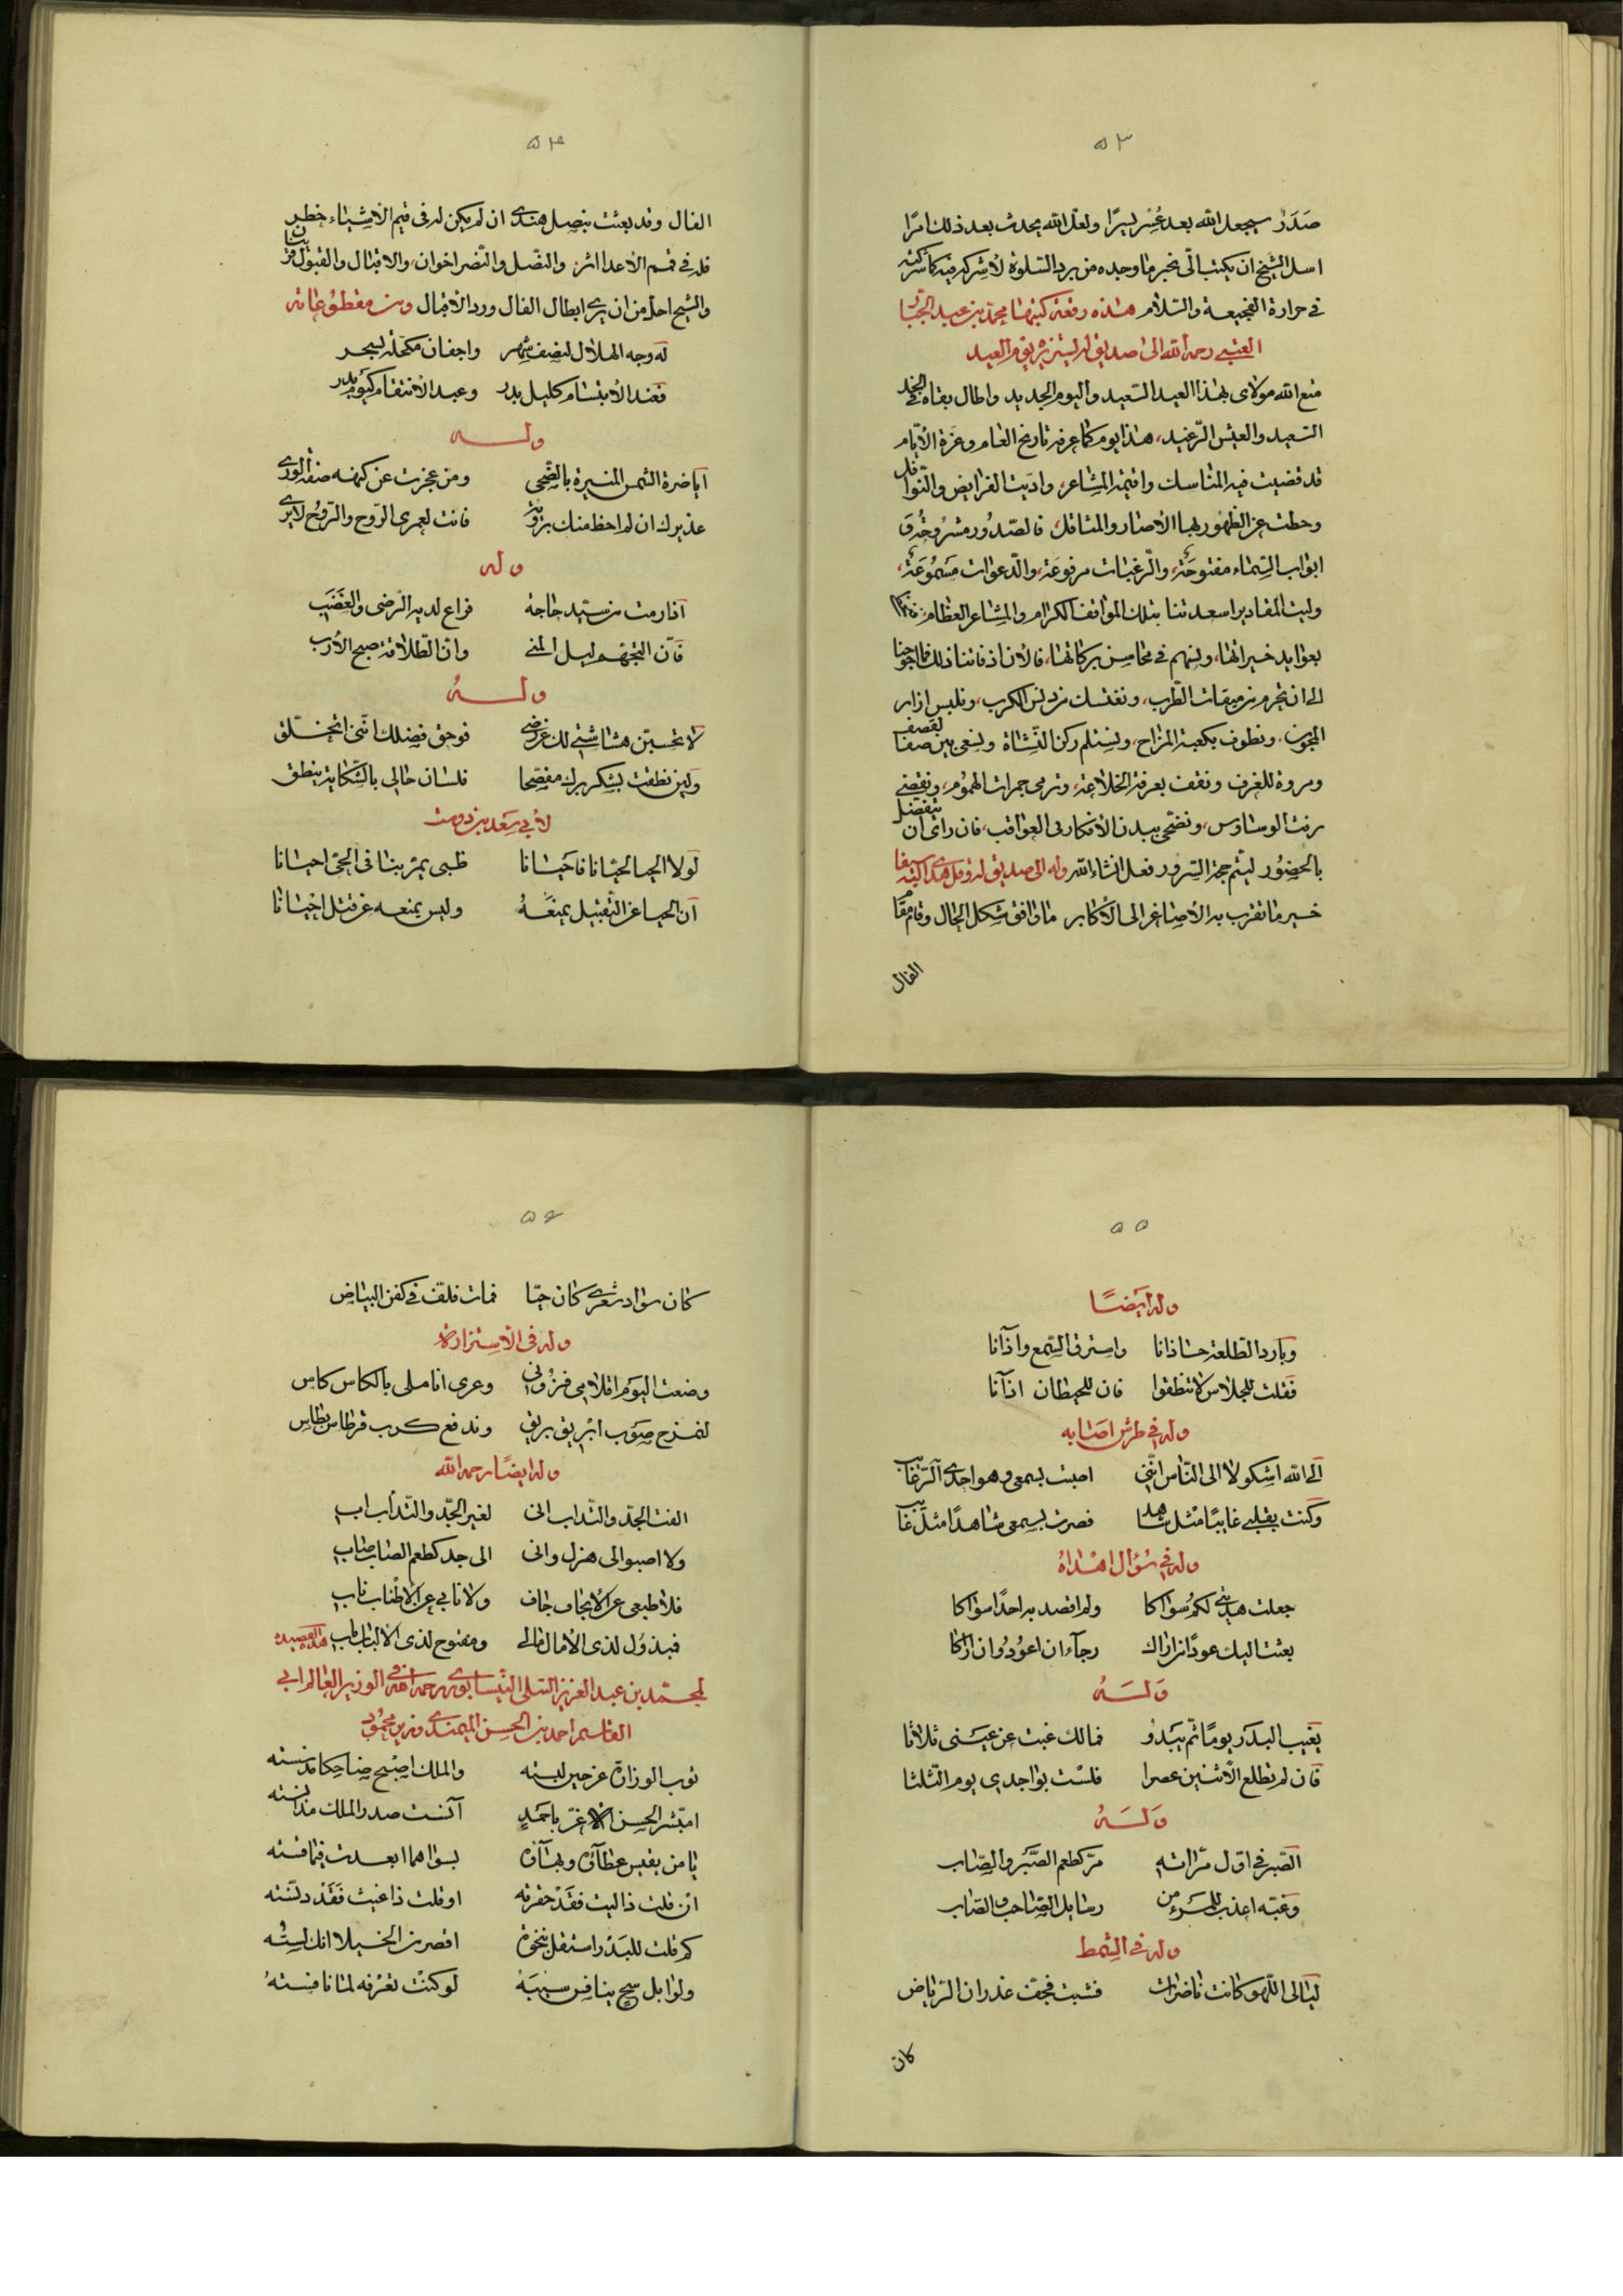 ٥٣
صَدَرْ سيجعل الله بعد عُسْر يسرًا ولعل الله يحدث بعد ذلك امرًا
اسل الشيخ ان يكتب الى بخبر ما وجده من برد السلوة لأشركه فيه كما شركته
فى حرارة الفجيعة والسلام هذه رقعة كتبها محمد بن عبد الجبار
العتبى رحمه الله الى صديق له ليستزيره يوم العيد
متع الله مولاى بهذا العيد السعيد واليوم الجديد واطال بقاه فى الجد
السعيد والعيش الرغيد، هذا يوم كما عرفه تاريخ العام وغرة الأيام
قد قضيت فيه المناسك واقيمه المشاعر، واديت الفرايض والنوافل
وحطت عن الظهور بها الأصار والمثاقل، فالصدور مشروحة و
ابواب السماء مفتوحة، والرغبات مرفوعة، والدعوات مسموعة،
وليت المقادير اسعدتنا بتلك المواقف الكرام والمشاعر العظام،
بعوايد خيراتها، ونسهم فى محاسن بركاتها، فالأن اذ فاتنا ذلك فما احوجنا
الى ان نحرم من ميقات الطرب، ونغتسل من دنس الكرب، ونلبس ازار
المجون، ونطوف بكعبة المزاح، ونستلم ركن النشاة ونسعى بين صفا للقصف
ومروة للغرف ونقف بعرفة الخلاعة، ونرمى جمرات الهموم، ونقضى
رفث الوساوس، ونضحى ببدن الأفكار فى العواقب، فان راى ان يتفضل
بالحضور ليتم حج السرور فعل ان شاء الله وله الى صديق له وقد اهدى اليه سيفا
خير ما تقرب به الأصاغر الى الأكابر ما وافق شكل الحال وقام مقام
الفال
٥٤
الفال وقد بعثت بنصل هندى ان لم يكن له فى قيم الأشياء خطر
فله فى قمم الأعدا اثر، والنصل والنصر اخوان، والاقبال والقبول قرينان
والشيخ اجل من ان يرى ابطال الفال ورد الأقبال ومن مقطوعاته
له وجه الهلال لنصف شهر واجفان مكحلة بسحر
فعند الأبتسام كليل بدر وعند الأنتقام كيوم بدر
وله
اياضرة الشمس المنيرة بالضحى ومن عجزت عن كنهه صفة الورى
عذيرك ان لم احظ منك بزورة فانت لعمرى الروح والروح لا يرى
وله
اذا رمت من سيد حاجة فراع لديه الرضى والغضب
فان التجهم ليل المنى وان الطلاقة صبح الأرب
وله
لا تحسبن هشاشتى لك عن رضى فوحق فضلك اننى اتخلق
ولين نطقت بشكر برك مفصحا فلسان حالى بالشكاية ينطق
لأبى سعد بن دوست
لولا الحيا لحيانا فاحيانا ظبى يمر بنا فى الحى احيانا
ان الحيا عن التقبيل يمنعه وليس يمنعه عن قتل احيانا
٥٥
وله ايضًا
وبارد الطلعة حاذانا واسترق السمع واذانا
فقلت للجلاس لا تنطقوا فان للحيطان اذانا
وله فى طرش اصابه
الى الله اشكو لا الى الناس اننى اصبت بسمعى وهو احدى الرغايب
وكنت بقلبى غايبًا مثل شاهد فصرت بسمعى شاهدًا مثل غايب
وله فى سؤال اهداه
جعلت هديتى لكم سواكا ولم اقصد به احدًا سواكا
بعثت اليك عودًا من اراك رجاء ان اعود وان اراكا
وله
يغيب البدر يومًا ثم يبدو فمالك غبت عن عينى ثلاثا
فان لم تطلع الأثنين عصرا فلست بواجدى يوم الثلثا
وله
الصبر فى اول مراته مر كطعم الصبر والصاب
وغبه اعذب للمرء من رسايل الصاحب والصاب
وله فى الشمط
ليالى اللهو كانت ناضرات فشبت فجفت غدران الرياض
كان
٥٦
كان سواد شعرى كان حيا فمات فلف فى كفن البياض
وله فى الأستزارة
وضعت اليوم اقلامى فزرنى وعرى اناملى بالكاس كاس
لنمزح صوب ابريق بريق وندفع كرب قرطاس بطاس
وله ايضًا رحمه الله
الفت الجد والتداب انى لغير الجد والتدأب اب
ولا اصبو الى هزل وانى الى جد كطعم الصاب صاب
فلا طبعى عن الأيجاف جاف ولا نابى عن الاطناب ناب
فبذول لذى الأمال مالى ومفتوح لذى الألباب باب هذه القصيدة
لمحمد بن عبد العزيز السلى النيسابورى رحمه الله فى الوزير العالم ابى
القاسم احمد بن الحسن الميمندى وزير محمود
ثوب الوزارة عز حين لبسته والملك اصبح ضاحكا مذ سسته
امبشر الحسن الأغر باحمد انست صدر الملك مذ انسته
يا من يقيس عطآءه وبهآءه بسواهما ابعدت فيما قسته
ان قلت ذا ليث فقد حقرته او قلت ذا غيث فقد دنسته
كم قلت للبدر استقل بنخوة اقصر من الخيلا انك لسته
ولوابل سح ينافس سيبه لو كنت تعرفه لما نافسته